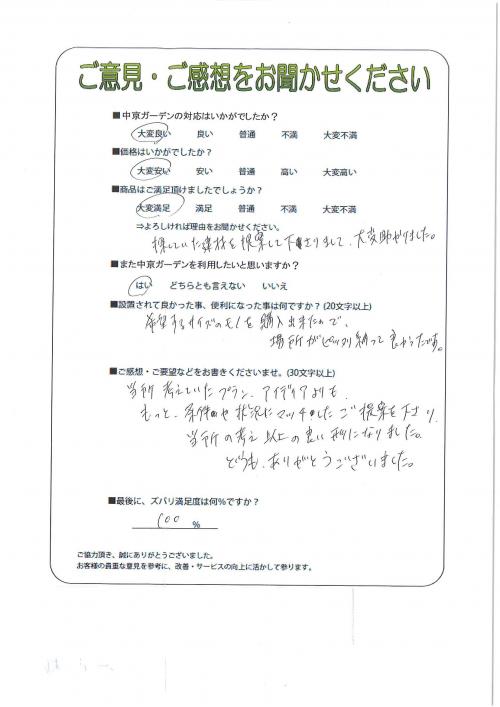 ご意見・ご感想をお聞かせください
■中京ガーデンの対応はいかがでしたか？
大変良い 良い 普通 不満 大変不満
■価格はいかがでしたか？
大変安い 安い 普通 高い 大変高い
■商品はご満足頂けましたでしょうか？
大変満足 満足 普通 不満 大変不満
⇒よろしければ理由をお聞かせください。
探していた 提案して下さりまして、大変助かりました。
■また中京ガーデンを利用したいと思いますか？
はい どちらとも言えない いいえ
■設置されて良かった事、便利になった事は何ですか？(20文字以上)
希望するサイズのモノを購入出来たので、
場所がピッタリ納って良かったです。
■ご感想・ご要望などをお書きくださいませ。(30文字以上)
当所考えていたプラン、アイディアよりも、
もっと、条件や状況にマッチしたご提案を下さり、
当所の考え以上の良い形になりました。
どうも、ありがとうございました。
■最後に、ズバリ満足度は何％ですか？
100 %
ご協力頂き、誠にありがとうございました。
お客様の貴重な意見を参考に、改善・サービスの向上に活かして参ります。